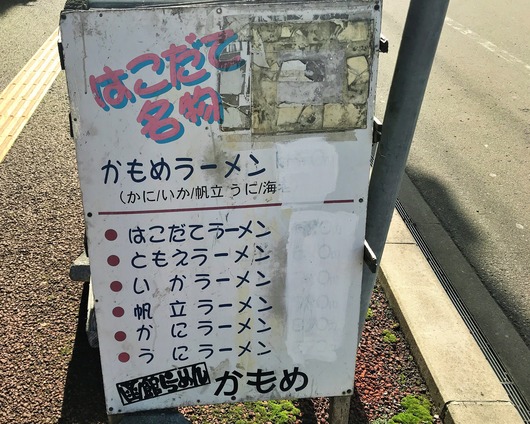 はこだて
名物
かもめラーメン
(かに/いか/帆立 うに/海
はこだてラーメン
ともえラーメン
いかラーメン
帆立ラーメン
かにラーメン
うにラーメン
函館らーめん かもめ